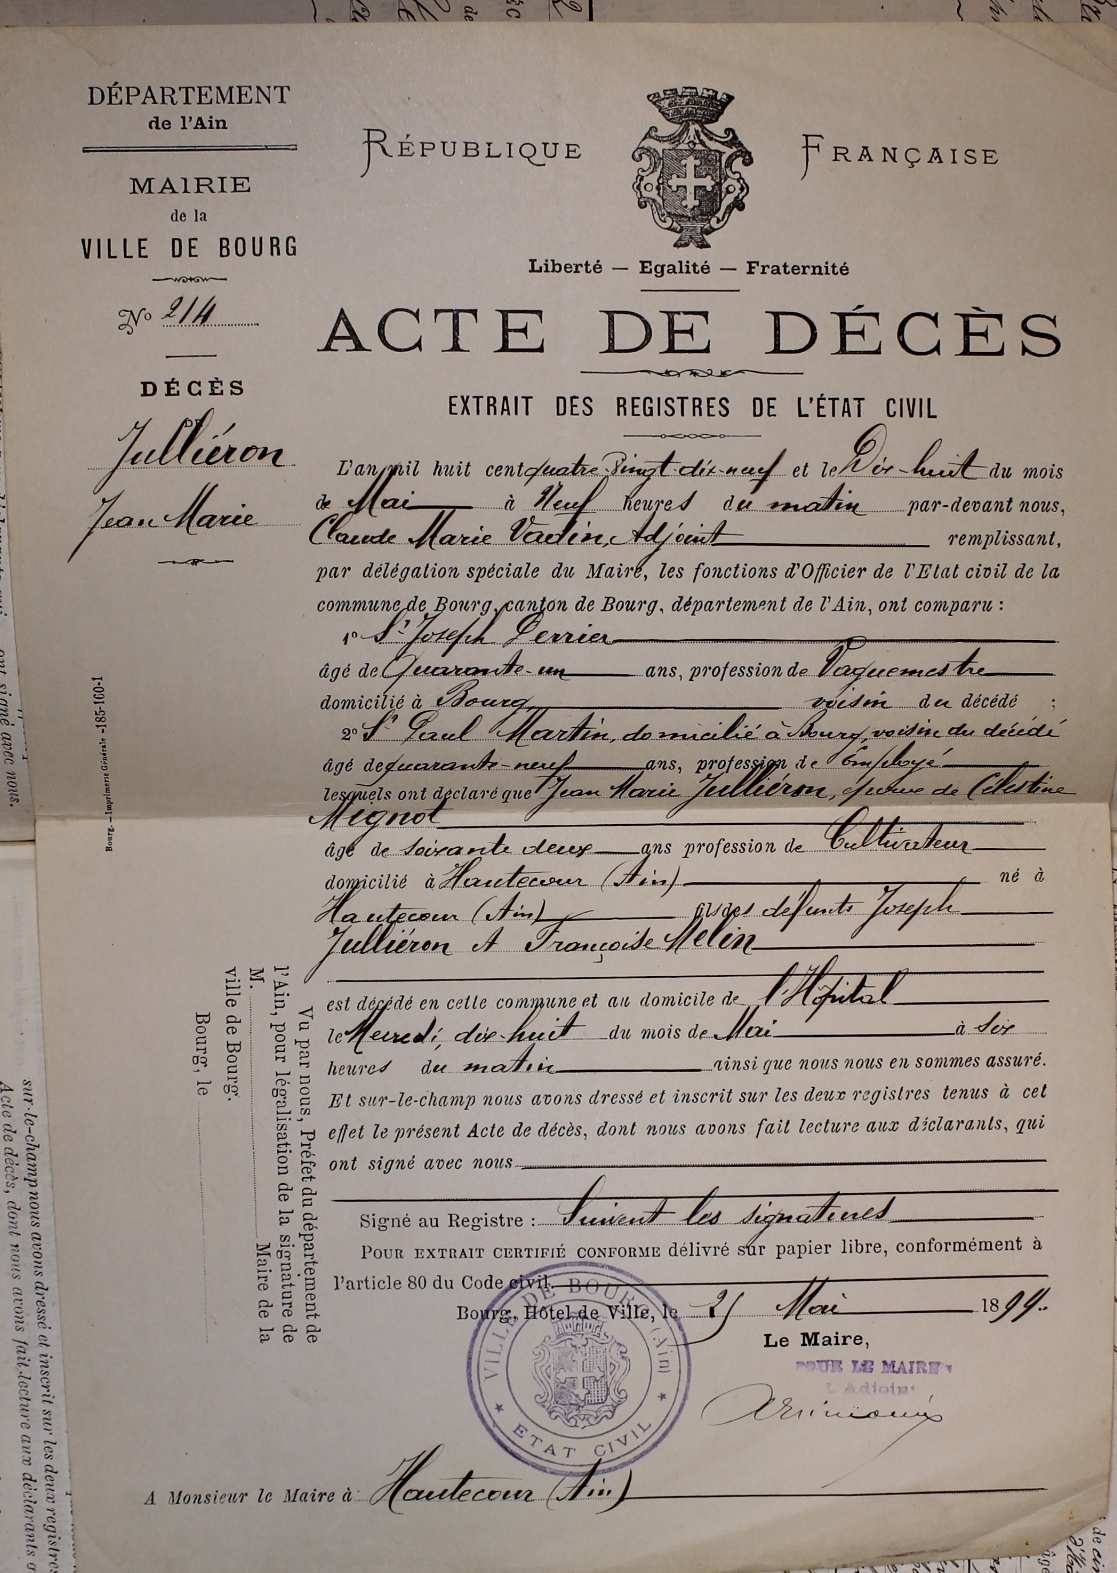 DÉPARTEMENT
de l'Ain
MAIRIE
de la
VILLE DE BOURG
No 214
DÉCÈS
DE
Julliéron
Jean Marie
RÉPUBLIQUE FRANÇAISE
Liberté — Egalité — Fraternité
ACTE DE DÉCÈS
EXTRAIT DES REGISTRES DE L'ÉTAT CIVIL
L'an mil huit cent quatre-vingt-dix-neuf et le Dix-huit du mois
de Mai à Neuf heures du matin par-devant nous,
Claude Marie Vadin, Adjoint remplissant,
par délégation spéciale du Maire, les fonctions d'Officier de l'Etat civil de la
commune de Bourg, canton de Bourg, département de l'Ain, ont comparu :
1o Sr Joseph Perrier
âgé de Quarante-un ans, profession de Vaguemestre
domicilié à Bourg voisin du décédé ;
2o Sr Paul Martin, domicilié à Bourg, voisin du décédé
âgé de quarante-neuf ans, profession de Employé
lesquels ont déclaré que Jean Marie Julliéron, époux de Célestine
Mignot
âgé de soixante deux ans profession de Cultivateur
domicilié à Hautecour (Ain) né à
Hautecour (Ain) fils des défunts Joseph
Julliéron et Françoise Melin
est décédé en cette commune et au domicile de l'Hôpital
le Mercredi, dix-huit du mois de Mai à six
heures du matin ainsi que nous nous en sommes assuré.
Et sur-le-champ nous avons dressé et inscrit sur les deux registres tenus à cet
effet le présent Acte de décès, dont nous avons fait lecture aux déclarants, qui
ont signé avec nous
Signé au Registre : Suivent les signatures
POUR EXTRAIT CERTIFIÉ CONFORME délivré sur papier libre, conformément à
l'article 80 du Code civil.
Bourg, Hôtel de Ville, le 25 Mai 1899.
Le Maire,
POUR LE MAIRE
L'Adjoint
VILLE DE BOURG (Ain)
ETAT CIVIL
A Monsieur le Maire à Hautecour (Ain)
Vu par nous, Préfet du département de
l'Ain, pour légalisation de la signature de
M. Maire de la
ville de Bourg.
Bourg, le
Bourg. — Imprimerie Générale -185-160-1
ont signé avec nous.
sur-le-champ nous avons dressé et inscrit sur les deux registres
Acte de décès, dont nous avons fait lecture aux déclarants